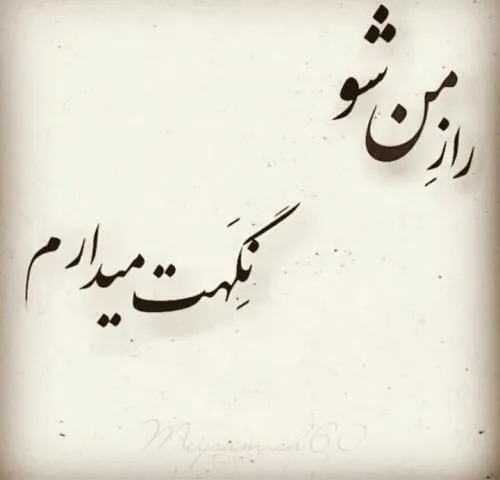 رازِ من شو
نِگَهت میدارم
Meysamsh60